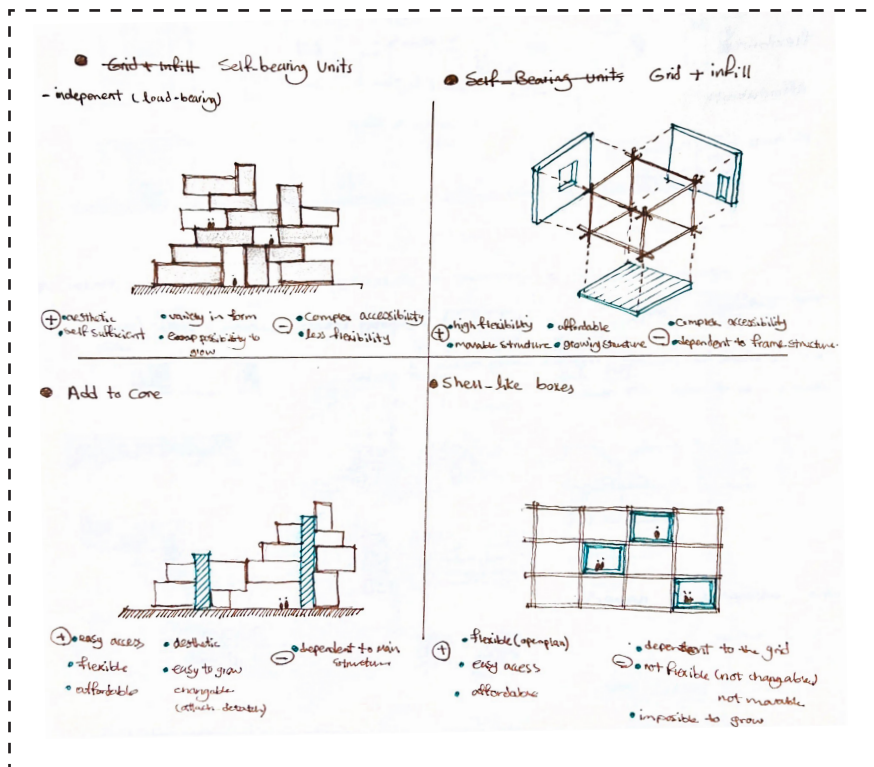 Grid + infill Self-bearing Units
- indepenent (load-bearing)
+ aesthetic
self sufficient
variety in form
posibility to
grow
- Complex accessibility
less flexibility
Self-Bearing units Grid + infill
+ high flexibility
movable structure
affordable
growing structure
- Complex accessibility
dependent to frame structure.
Add to Core
+ easy access
flexible
affordable
aesthetic
easy to grow
changable
(attach detatch)
- dependent to main
structure
Shell-like boxes
+ flexible (openplan)
easy acess
affordable
- dependent to the grid
not flexible (not changable)
not movable
imposible to grow